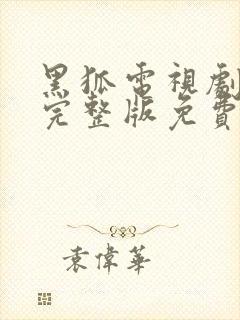 黑狐電視劇
完整版免費
袁偉華